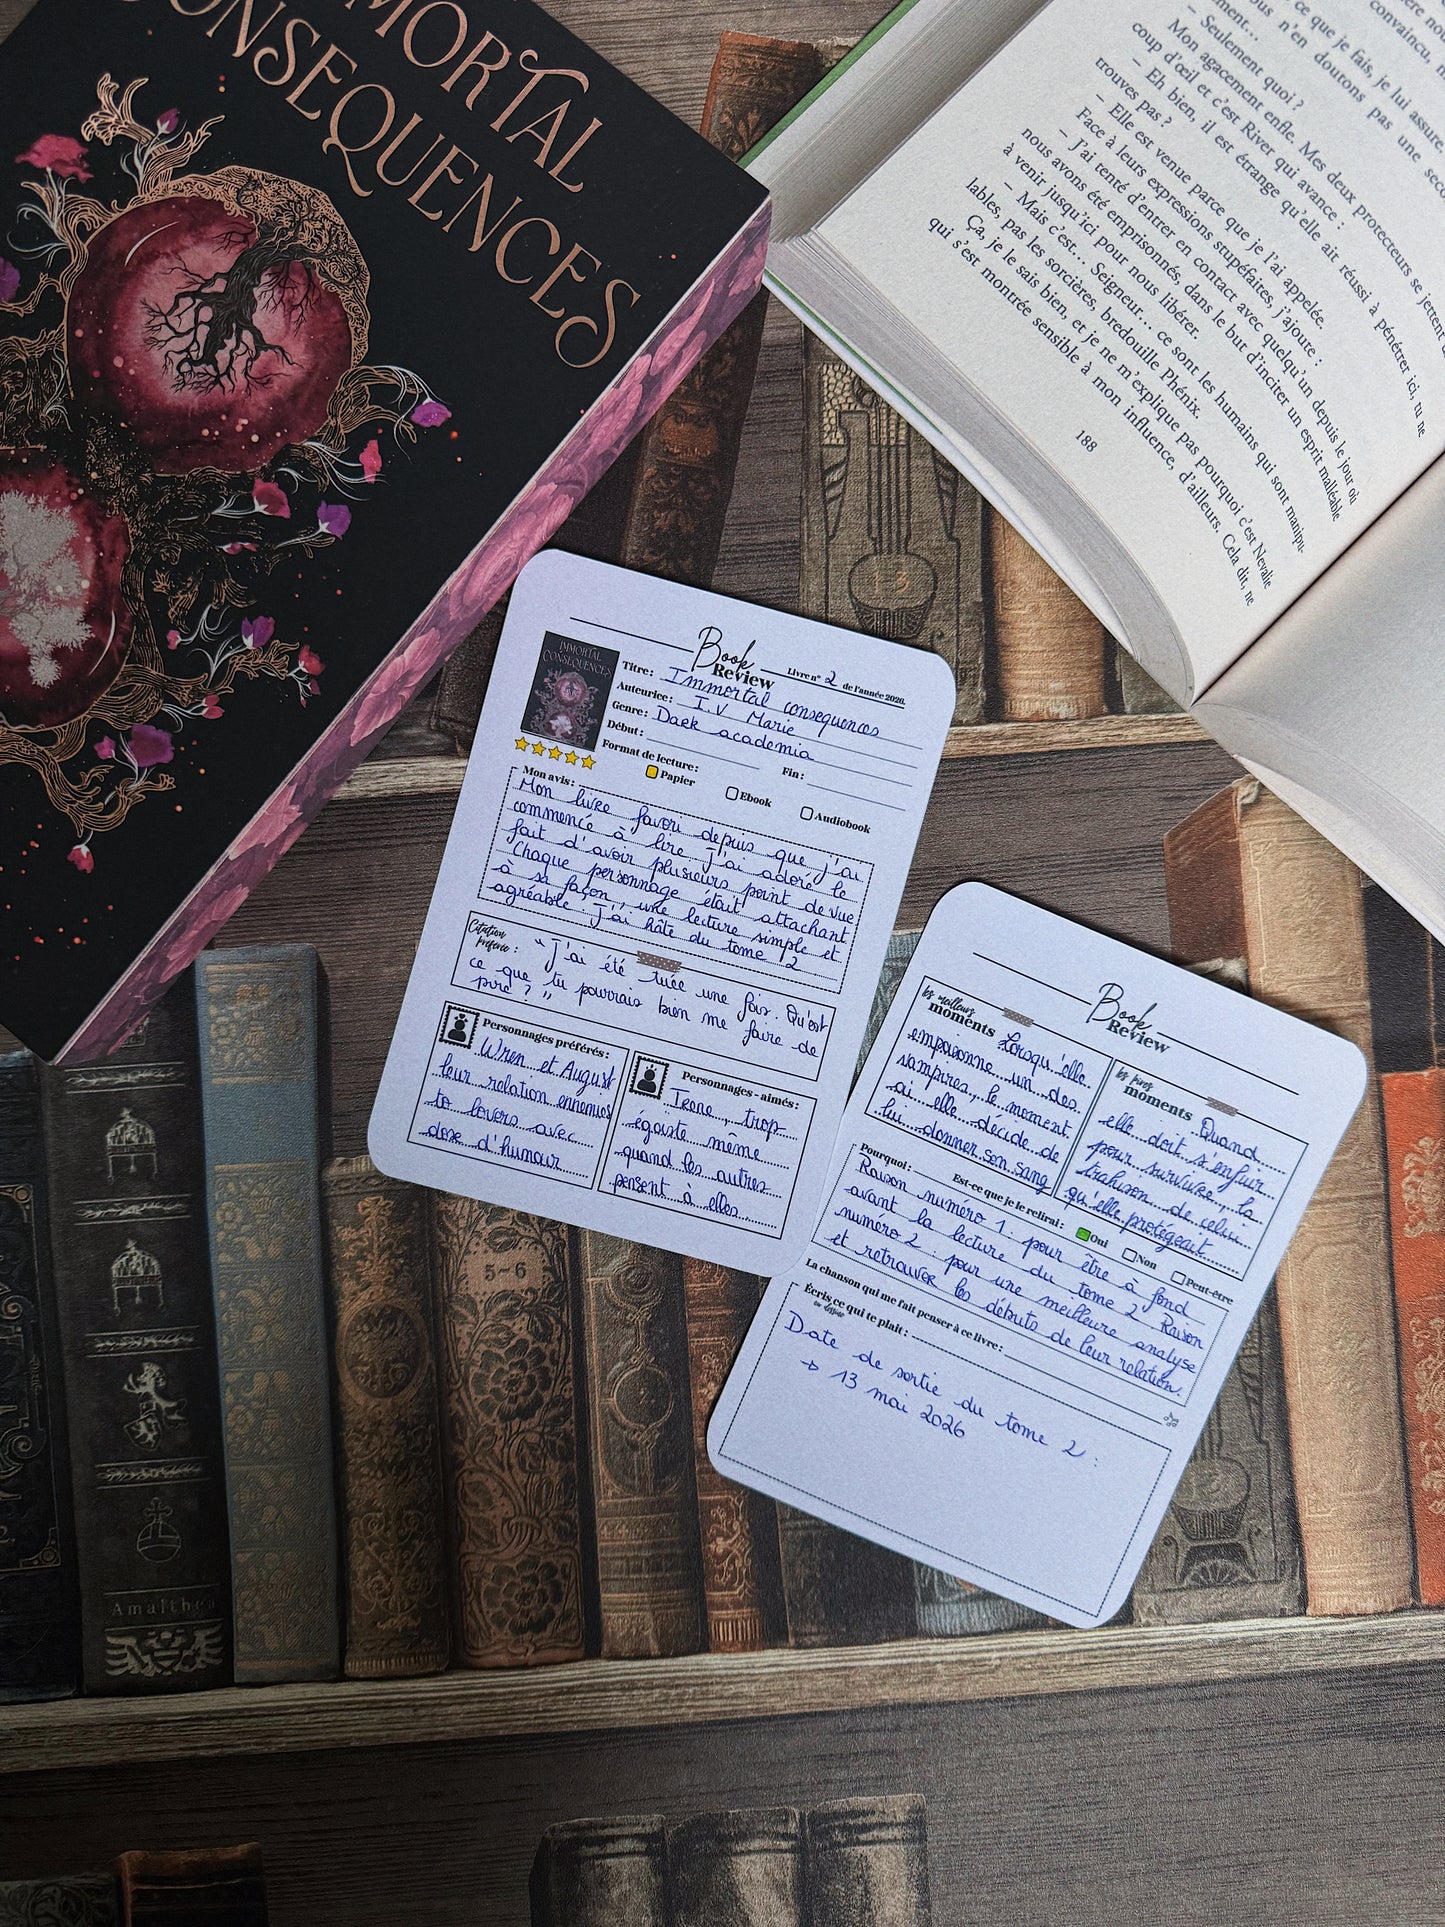 MMORTAL
CONSEQUENCES
ce que je fais, je lui assure.
ous n'en doutons pas une seco
ment…
– Seulement quoi ?
Mon agacement enfle. Mes deux protecteurs se jettent
coup d'œil et c'est River qui avance :
– Eh bien, il est étrange qu'elle ait réussi à pénétrer ici, tu ne
trouves pas ?
– Elle est venue parce que je l'ai appelée.
Face à leurs expressions stupéfaites, j'ajoute :
– J'ai tenté d'entrer en contact avec quelqu'un depuis le jour où
nous avons été emprisonnés, dans le but d'inciter un esprit malléable
à venir jusqu'ici pour nous libérer.
– Mais c'est… Seigneur… ce sont les humains qui sont manipu-
lables, pas les sorcières, bredouille Phénix.
Ça, je le sais bien, et je ne m'explique pas pourquoi c'est Nevalie
qui s'est montrée sensible à mon influence, d'ailleurs. Cela dit, ne
188
Book
Review
Livre n° 2 de l'année 2026.
IMMORTAL
CONSEQUENCES
Titre : Immortal consequences
Auteurice : I.V Marie
Genre : Dark academia
Début :
Fin :
Format de lecture :
Papier
Ebook
Audiobook
Mon avis :
Mon livre favori depuis que j'ai
commencé à lire. J'ai adoré le
fait d'avoir plusieurs point de vue
Chaque personnage était attachant
à sa façon, une lecture simple et
agréable. J'ai hâte du tome 2
Citation
préférée : "J'ai été tuée une fois. Qu'est
ce que tu pourrais bien me faire de
pire ?"
Personnages préférés :
Wren et August
leur relation ennemies
to lovers avec
dose d'humour
Personnages - aimés :
Irene, trop
égoïste même
quand les autres
pensent à elles
Book
Review
les meilleurs
moments Lorsqu'elle
empoisonne un des
vampires, le moment
où elle décide de
lui donner son sang
les pires
moments Quand
elle doit s'enfuir
pour survivre, la
trahison de celui
qu'elle protégeait
Est-ce que je le relirai :
Oui
Non
Peut-être
Pourquoi :
Raison numéro 1 : pour être à fond
avant la lecture du tome 2 Raison
numéro 2 : pour une meilleure analyse
et retrouver les débuts de leur relation.
La chanson qui me fait penser à ce livre :
Écris ce qui te plait :
ou dessine
Date de sortie du tome 2 :
→ 13 mai 2026
13
5-6
Amalthea